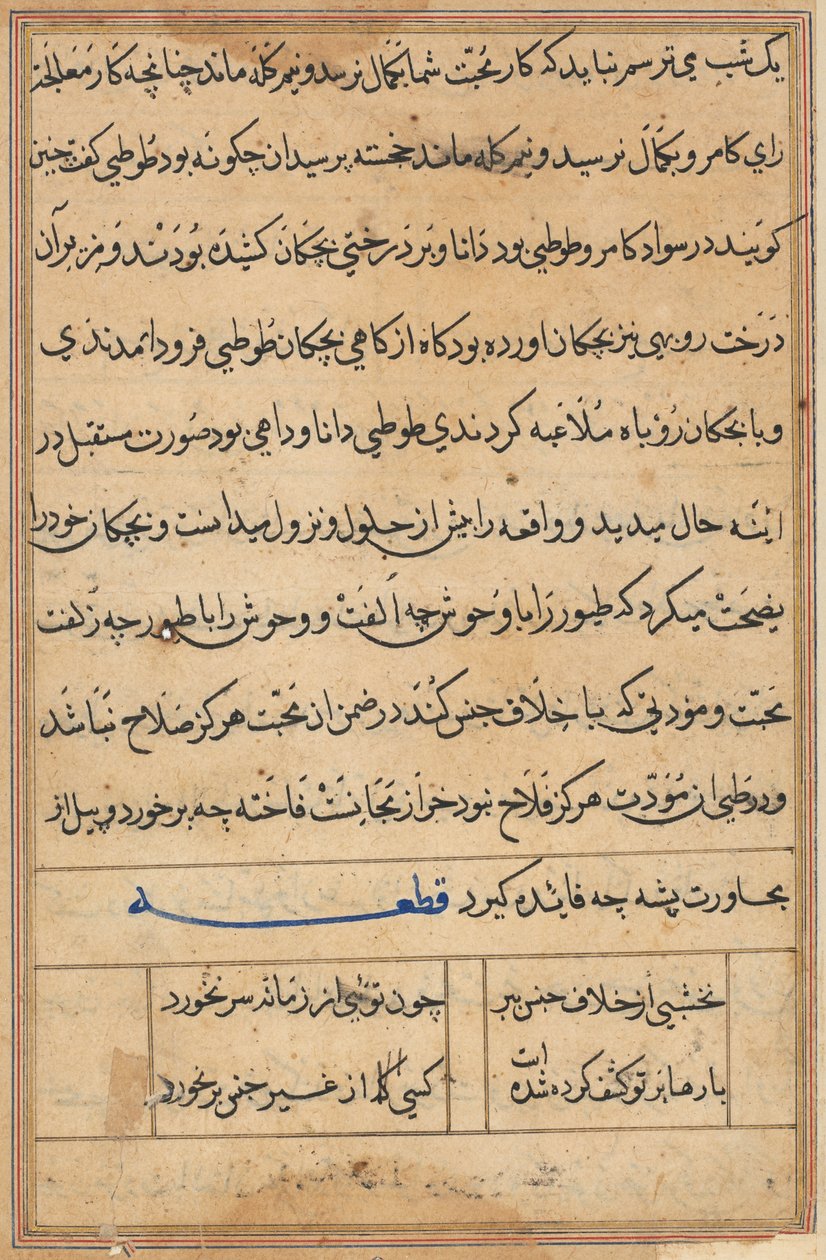 یک شب می ترسم نباید که کار محبّت شما بکمال نرسد و نیم کله ماند چنانچه کار معالجة
رای کامرو بکمال نرسید و نیم کله ماند خجسته پرسید ان چکونه بود طوطیی کفت چنین
کویند در سواد کامرو طوطیی بود دانا و بر درختی بچکان کشیده بودند و مر بر آن
درخت روبهی نیز بچکان اورده بود کاه از کاهی بچکان طوطیی فرود امدندی
و با بچکان روباه ملاعبه کردندی طوطیی دانا و داهی بود صورت مستقبل در
اینه حال میدید و واقعه را پیش از حلول و نزول میدانست و بچکان خود را
نصیحت میکرد که طیور را با وحوش چه الفت و وحوش را با طیور چه زلفت
محبّت و مودتی که با خلاف جنس کنند در ضمن ان محبّت هرکز صلاح نباشد
و در طیی ان مودّت هرکز فلاح نبود خر از مجانست فاخته چه برخورد و پیل از
مجاورت پشه چه فائده کیرد قطعه
نخشبیی از خلاف جنس ببر چون توئی از زمانه سر نخورد
بارها بر تو کشف کرده شده است کسیی کا از غیر جنس بر نخورد